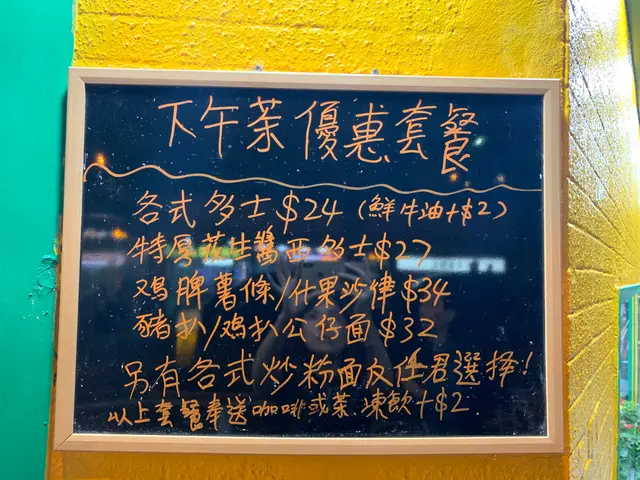 下午茶優惠套餐
各式多士$24 (鮮牛油+$2)
特厚花生醬西多士$27
鸡脾薯條/什果沙律$34
豬扒/鸡扒公仔面$32
另有各式炒粉面反任君選择!
以上套餐奉送咖啡或茶.凍飲+$2